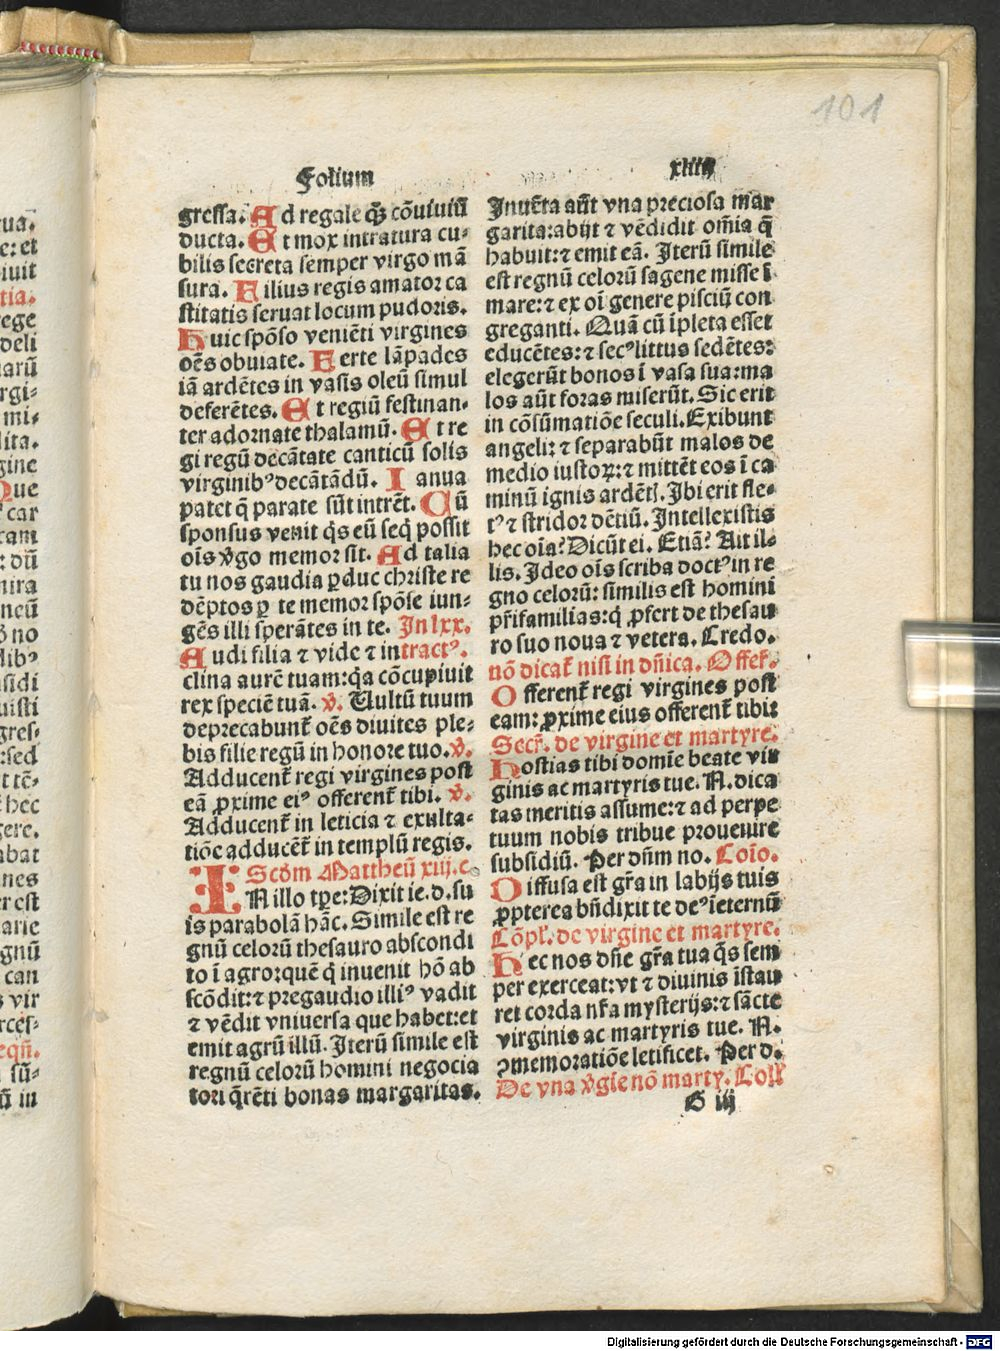 101
Folium xliiij
gressa. Ad regale q̄ȝ cōuiuiū
ducta. Et mox intratura cu-
bilis secreta semper virgo mā
sura. Filius regis amator ca
stitatis seruat locum pudoris.
Huic spōso veniēti virgines
oēs obuiate. Ferte lāpades
iā ardētes in vasis oleū simul
deferētes. Et regiū festinan-
ter adornate thalamū. Et re
gi regū decātate canticū solis
virginibꝰ decātādū. Ianua
patet q̄ parate sūt intrēt. Cū
sponsus venit q̄s eū seq̄ possit
oīs v̄go memor sit. Ad talia
tu nos gaudia ꝑduc christe re
dēptos ꝑ te memor spōse iun-
gēs illi sperātes in te. In lxx.
Audi filia ⁊ vide ⁊ in tractꝰ.
clina aurē tuam: q̄a cōcupiuit
rex speciē tuā. v̄. Uultū tuum
deprecabunt̄ oēs diuites ple-
bis filie regū in honore tuo. v̄.
Adducent̄ regi virgines post
eā ꝓxime eiꝰ offerent̄ tibi. v̄.
Adducent̄ in leticia ⁊ exulta-
tiōe adducēt̄ in templū regis.
Scdm̄ Mattheū xiij. c.
IN illo tp̄e: Dixit ie. d. su
is parabolā hāc. Simile est re
gnū celorū thesauro abscondi
to ī agro: quē q̄ inuenit hō ab
scōdit: ⁊ pregaudio illiꝰ vadit
⁊ vēdit vniuersa que habet: et
emit agrū illū. Iterū simile est
regnū celorū homini negocia
tori q̄rēti bonas margaritas.
Inuēta aūt vna preciosa mar
garita: abijt ⁊ vēdidit oīa q̄
habuit: ⁊ emit eā. Iterū simile
est regnū celorū sagene misse ī
mare: ⁊ ex oī genere pisciū con
greganti. Quā cū īpleta esset
educētes: ⁊ secꝰ littus sedētes:
elegerūt bonos ī vasa sua: ma
los aūt foras miserūt. Sic erit
in cōsūmatiōe seculi. Exibunt
angeli: ⁊ separabūt malos de
medio iustoꝝ: ⁊ mittēt eos ī ca
minū ignis ardētꝭ. Ibi erit fle-
tꝰ ⁊ stridor dētiū. Intellexistis
hec oīa? Dicūt ei. Etiā? Ait il-
lis. Ideo oīs scriba doctꝰ in re
gno celorū: similis est homini
pr̄ifamilias: q̄ ꝓfert de thesau
ro suo noua ⁊ vetera. Credo.
nō dicat̄ nisi in dn̄ica. Offer̄.
Offerent̄ regi virgines post
eam: ꝓxime eius offerent̄ tibi:
Secr̄. de virgine et martyre.
Hostias tibi domīe beate vir
ginis ac martyris tue. N. dica
tas meritis assume: ⁊ ad perpe
tuum nobis tribue prouenire
subsidiū. Per dn̄m no. Coīo.
Diffusa est gr̄a in labijs tuis
ꝓpterea bn̄dixit te deꝰ ī eternū
Cōpl̄. de virgine et martyre.
Hec nos dn̄e gr̄a tua q̄s sem
per exerceat: vt ⁊ diuinis īstau
ret corda nr̄a mysterijs: ⁊ sācte
virginis ac martyris tue. N.
ꝯmemoratiōe letificet. Per d.
De vna v̄gīe nō marty. Coll̄
G iij
Digitalisierung gefördert durch die Deutsche Forschungsgemeinschaft - DFG